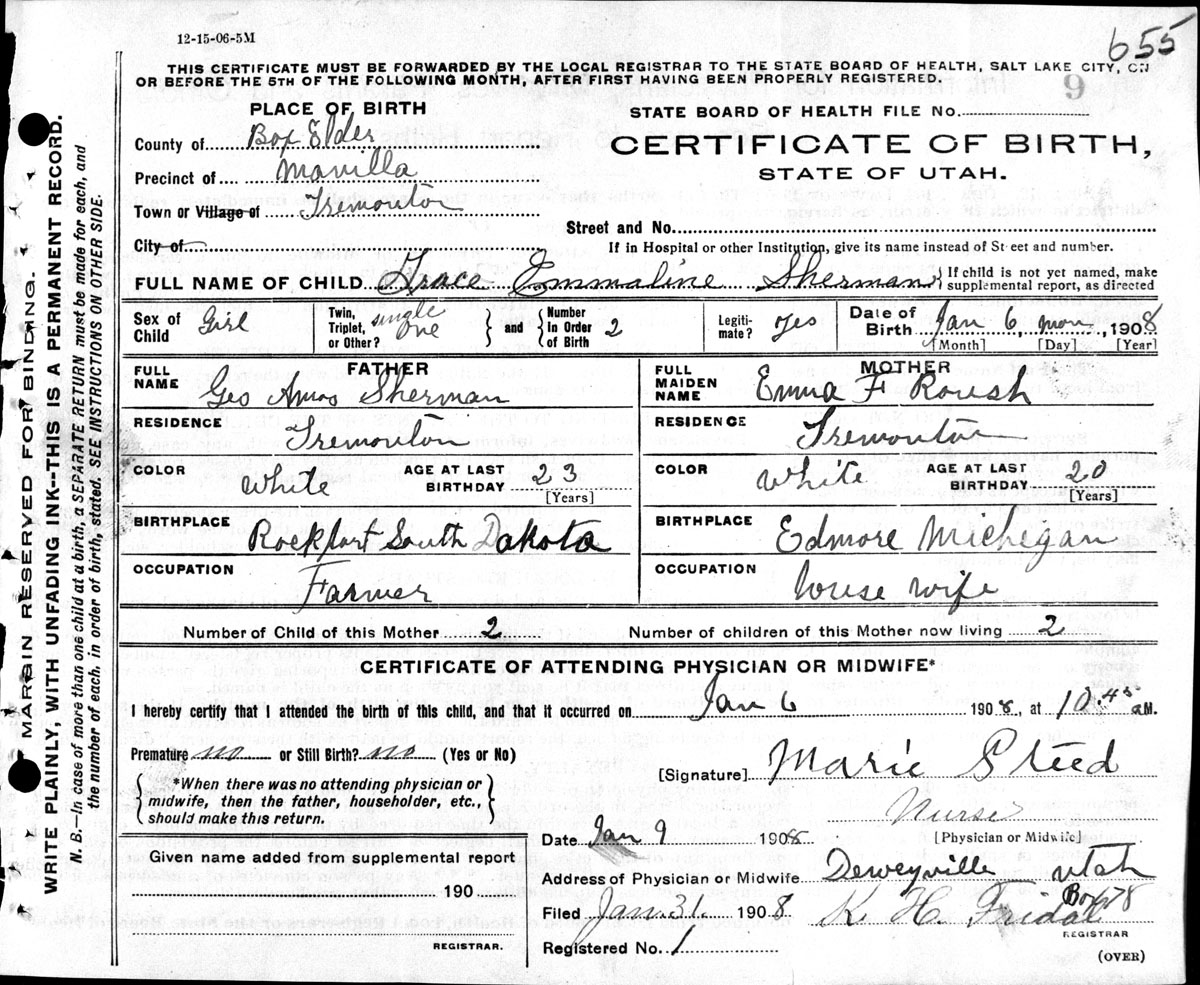 12-15-06-5M
655
THIS CERTIFICATE MUST BE FORWARDED BY THE LOCAL REGISTRAR TO THE STATE BOARD OF HEALTH, SALT LAKE CITY, ON
OR BEFORE THE 5TH OF THE FOLLOWING MONTH, AFTER FIRST HAVING BEEN PROPERLY REGISTERED.
9
PLACE OF BIRTH
STATE BOARD OF HEALTH FILE No.
County of Box Elder
CERTIFICATE OF BIRTH,
STATE OF UTAH.
Precinct of Manilla
Town or Village of Tremonton
Street and No.
City of
If in Hospital or other Institution, give its name instead of Street and number.
FULL NAME OF CHILD Grace Emmaline Sherman { If child is not yet named, make supplemental report, as directed
Sex of Child Girl Twin, Triplet, or Other? single one } and { Number In Order of Birth 2 Legiti- mate? Yes Date of Birth Jan 6, mon, 1908
[Month] [Day] [Year]
FATHER MOTHER
FULL NAME Geo Amos Sherman FULL MAIDEN NAME Emma F Roush
RESIDENCE Tremonton RESIDENCE Tremonton
COLOR White AGE AT LAST BIRTHDAY 23 [Years] COLOR White AGE AT LAST BIRTHDAY 20 [Years]
BIRTHPLACE Rockport South Dakota BIRTHPLACE Edmore Michegan
OCCUPATION Farmer OCCUPATION house wife
Number of Child of this Mother 2 Number of children of this Mother now living 2
CERTIFICATE OF ATTENDING PHYSICIAN OR MIDWIFE*
I hereby certify that I attended the birth of this child, and that it occurred on Jan 6 1908, at 10 45 a M.
Premature no or Still Birth? no (Yes or No)
[Signature] Marie Steed
{ *When there was no attending physician or midwife, then the father, householder, etc., should make this return. }
Nurse
[Physician or Midwife]
Date Jan 9 1908
Given name added from supplemental report
Address of Physician or Midwife Deweyville Utah
Box 78
190
Filed Jan. 31. 1908 K. H. Fridal
REGISTRAR
REGISTRAR.
Registered No. 1
(OVER)
MARGIN RESERVED FOR BINDING.
WRITE PLAINLY, WITH UNFADING INK--THIS IS A PERMANENT RECORD.
N. B.—In case of more than one child at a birth, a SEPARATE RETURN must be made for each, and
the number of each, in order of birth, stated. SEE INSTRUCTIONS ON OTHER SIDE.